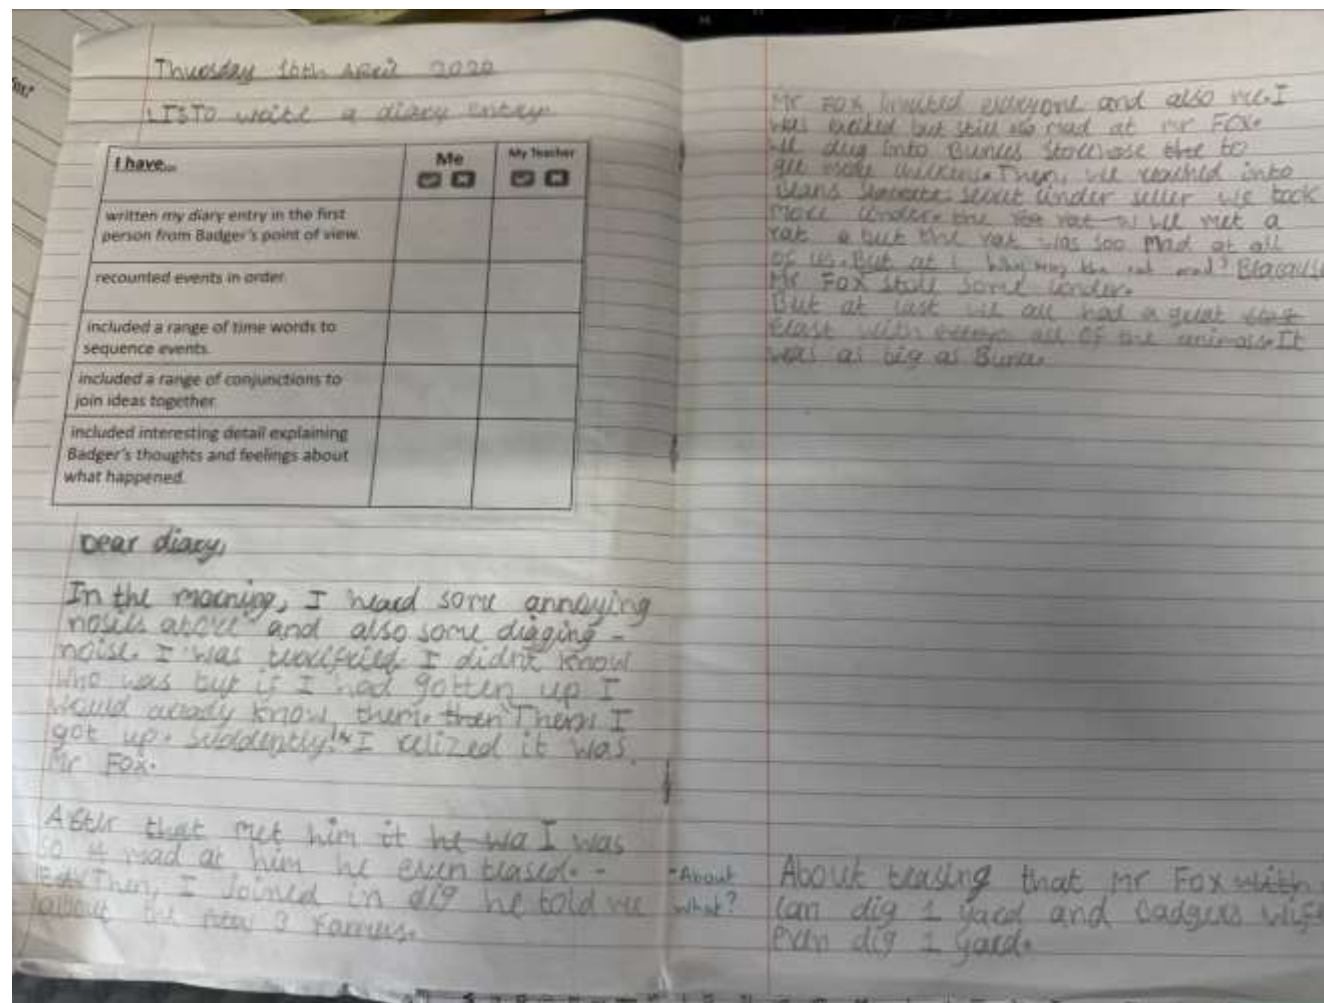 Thursday 16th April 2020
LISTO write a diary entry
I have...
Me
My Teacher
written my diary entry in the first
person from Badger's point of view.
recounted events in order.
included a range of time words to
sequence events.
included a range of conjunctions to
join ideas together.
included interesting detail explaining
Badger's thoughts and feelings about
what happened.
Dear diary,
In the morning, I heard some annoying
above and also some digging -
noise. I was I didn't know
who was but if I had gotten up I
would know then. then Then, I
got up. I relized it was
Mr Fox.
After that met him it he wa I was
so mad at him he even teased. -
Then, I Joined in dig he told me
about the 3 Farmers.
Mr Fox everyone and also me. I
was excited but still mad at mr Fox.
We dug into Bunces to
get more chickens. Then, we reached into
Beans secret under seller we took
more the rat we met a
rat but the rat was soo mad at all
of us. But at the rat mad?
Mr Fox stole some
But at last we all had a great
with all of the animals. It
was as big as Bunce.
-About
what?
About teasing that Mr Fox
can dig 1 yard and Badgers wife
even dig 1 yard.